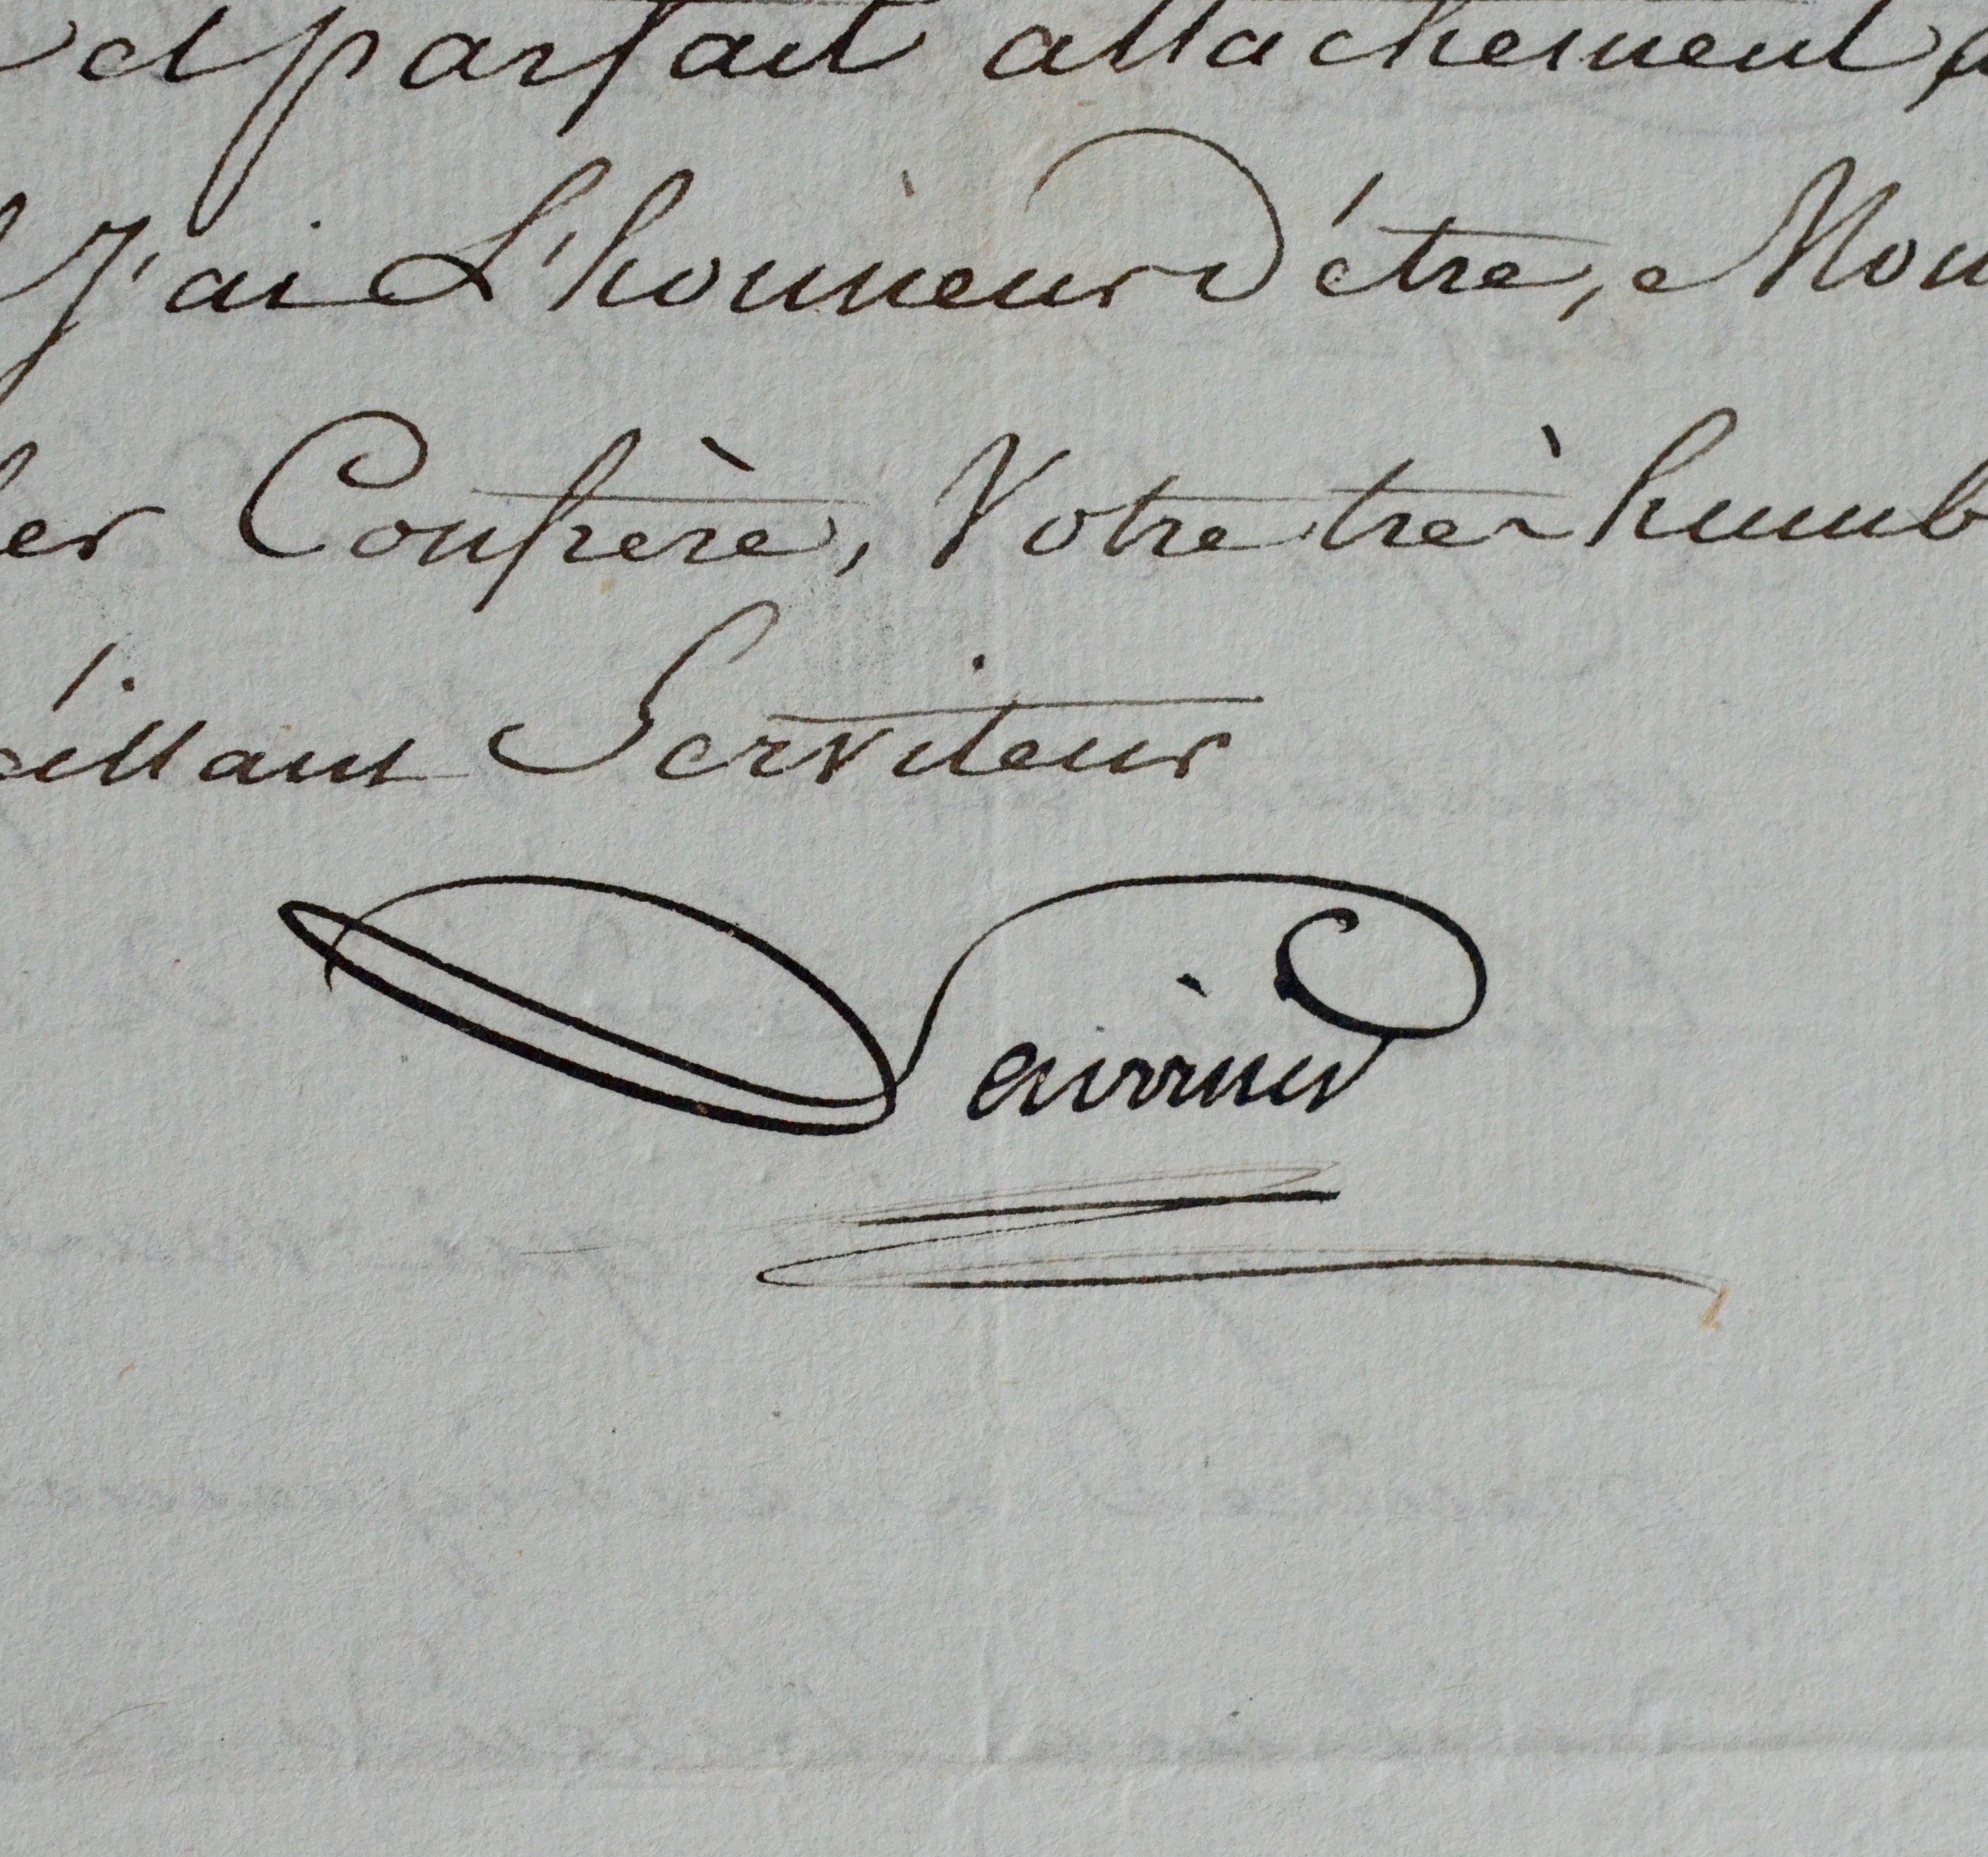 et parfait attachement
J'ai L'honneur D'être, Mon
er Confrère, Votre très humb
éissant Serviteur